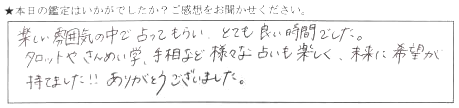 ★本日の鑑定はいかがでしたか？ご感想をお聞かせください。
楽しい雰囲気の中で占ってもらい、とても良い時間でした。
タロットやさんめい学、手相など様々な占いも楽しく、未来に希望が
持てました!! ありがとうございました。